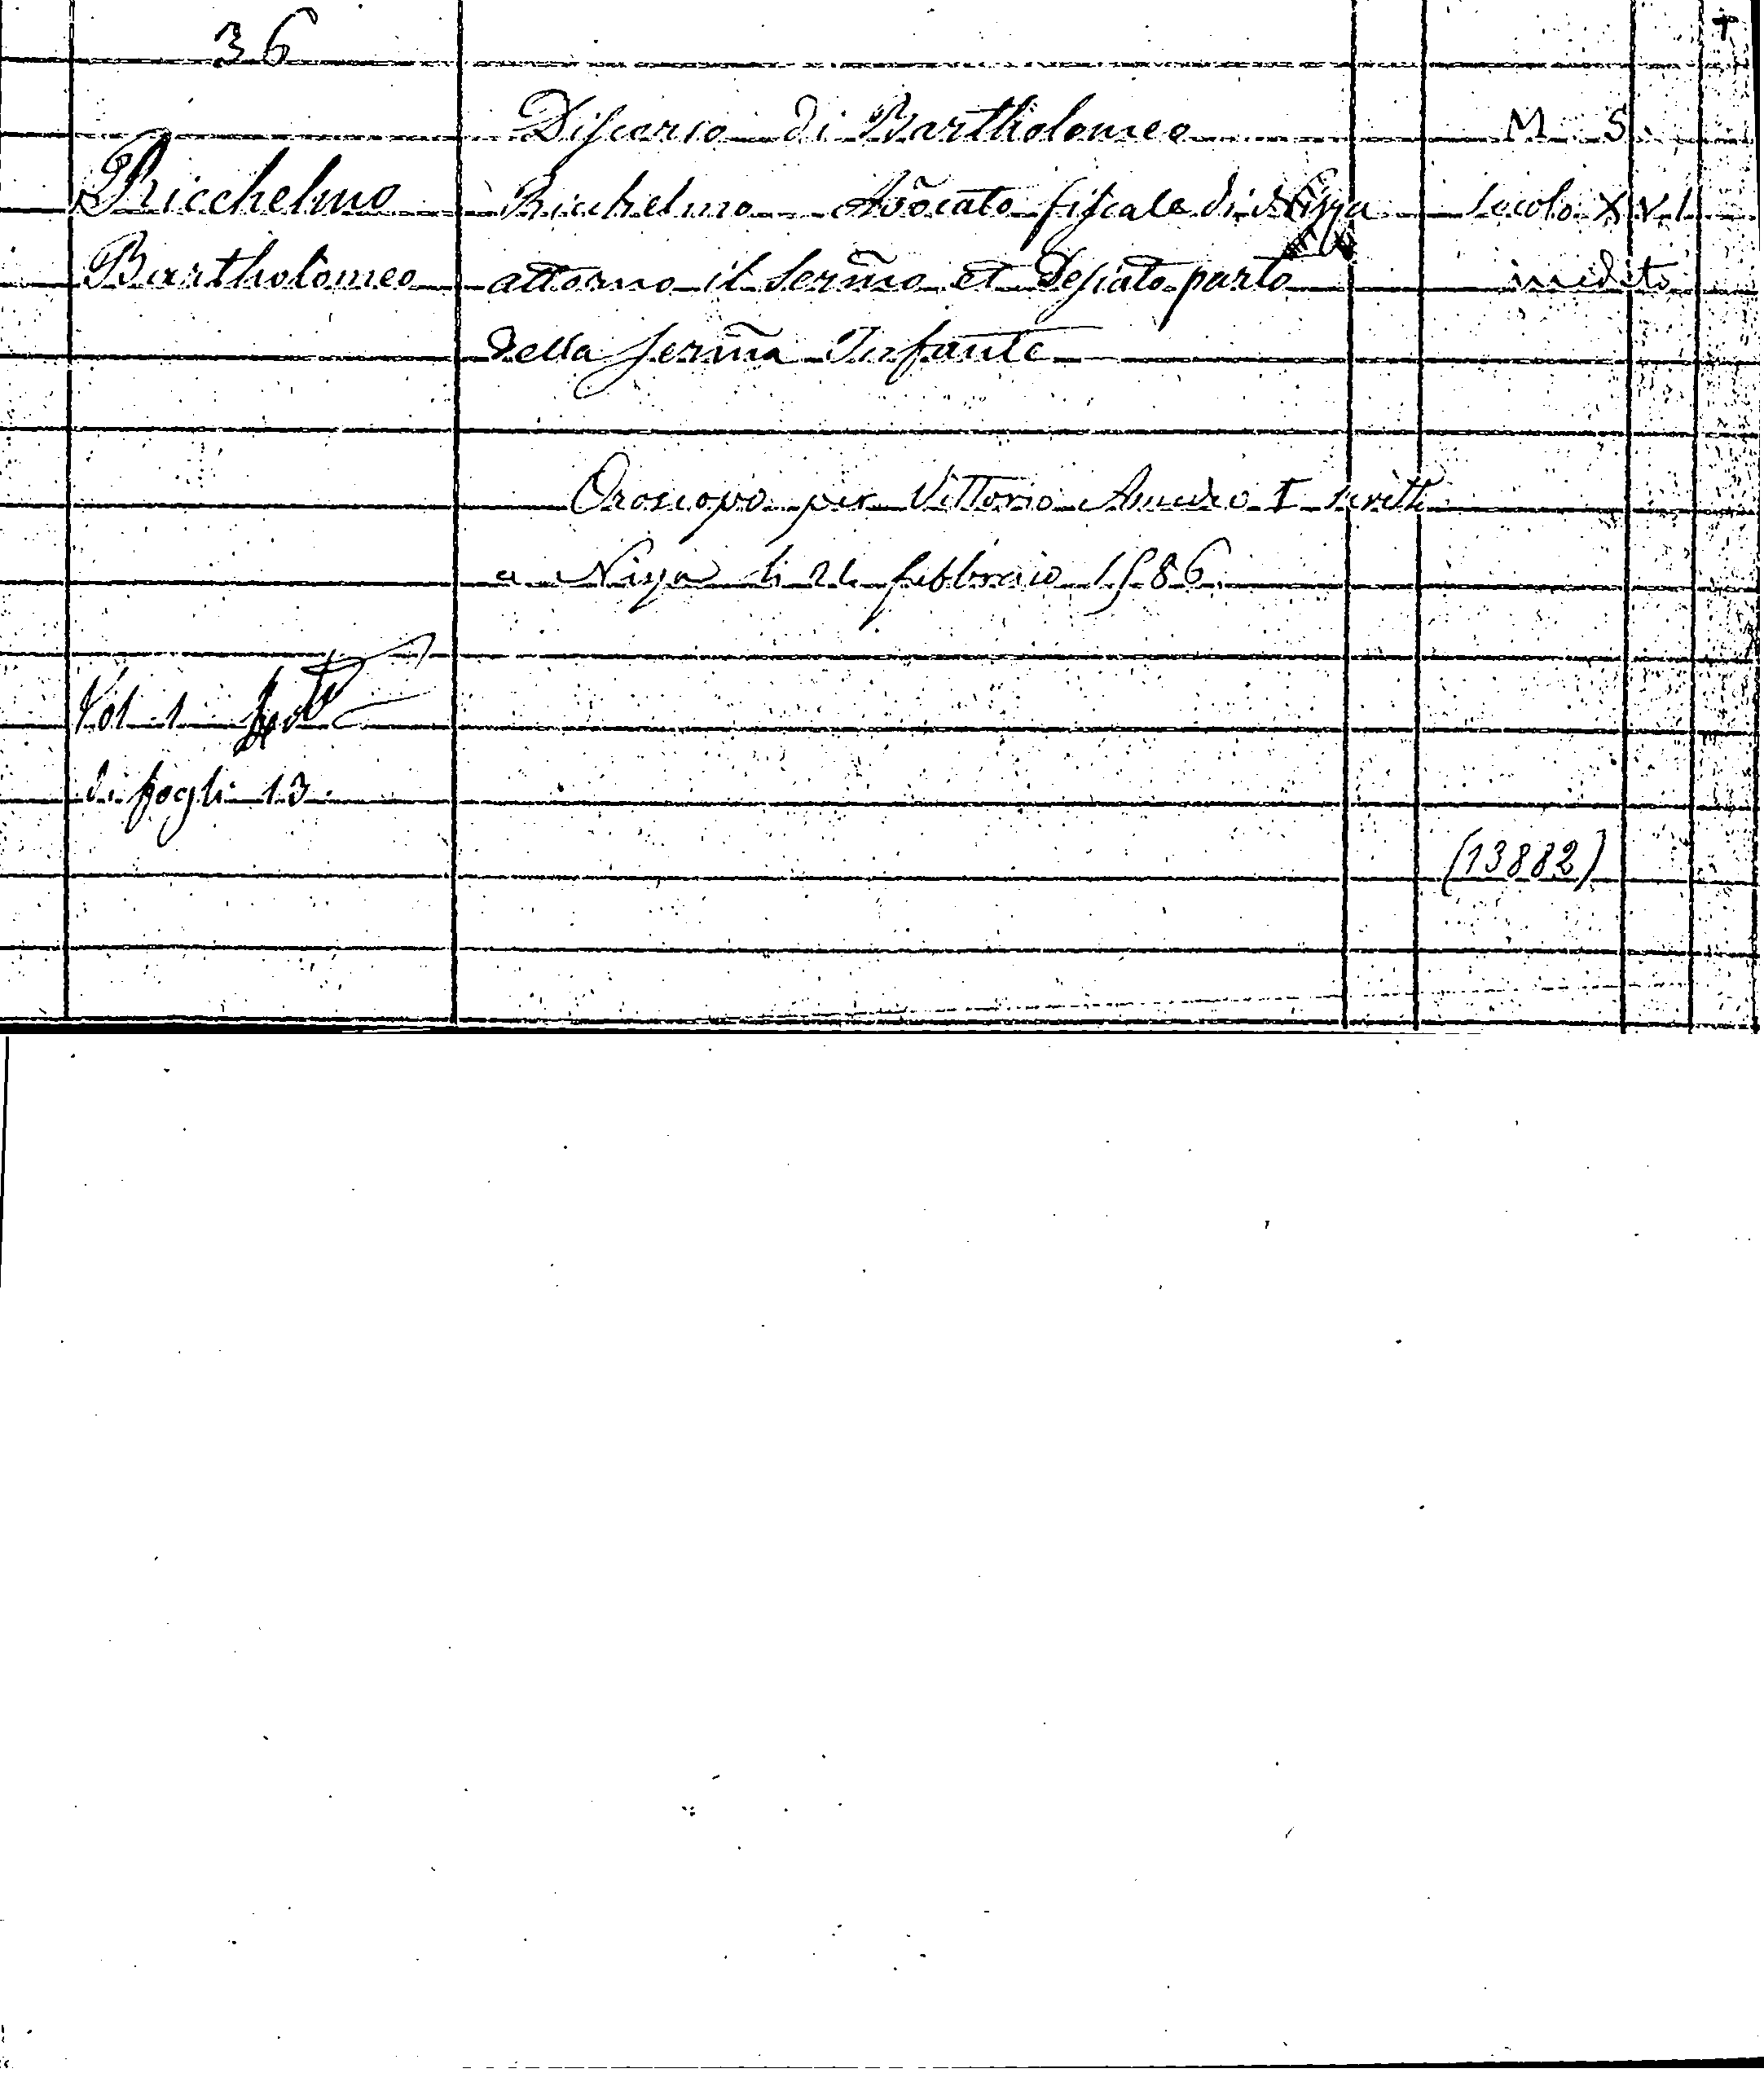 36
Discorso di Bartholomeo
M. S.
Ricchelmo
Ricchelmo Avõcato fiscale di Nizza
secolo XVI
Bartholomeo
attorno il Serm̃o et Desiato parto
inedito
della serm̃a Infante
Oroscopo per Vittorio Amedeo I scritto
a Nizza li 21 febbraio 1586.
Vol. 1
di fogli 13
(13882)